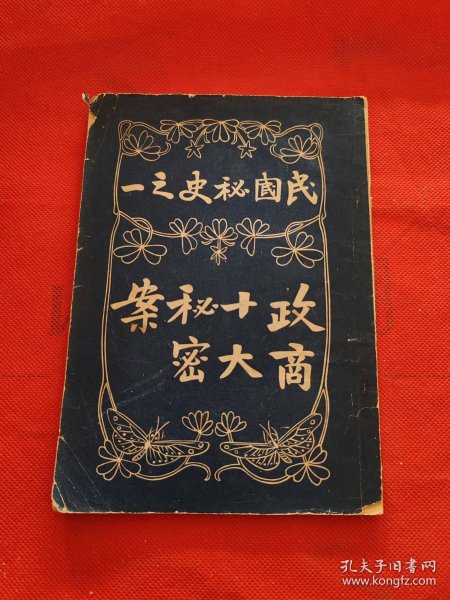 民國秘史之一
政商
十大
秘密
案
孔夫子旧书网
www.kongfz.com